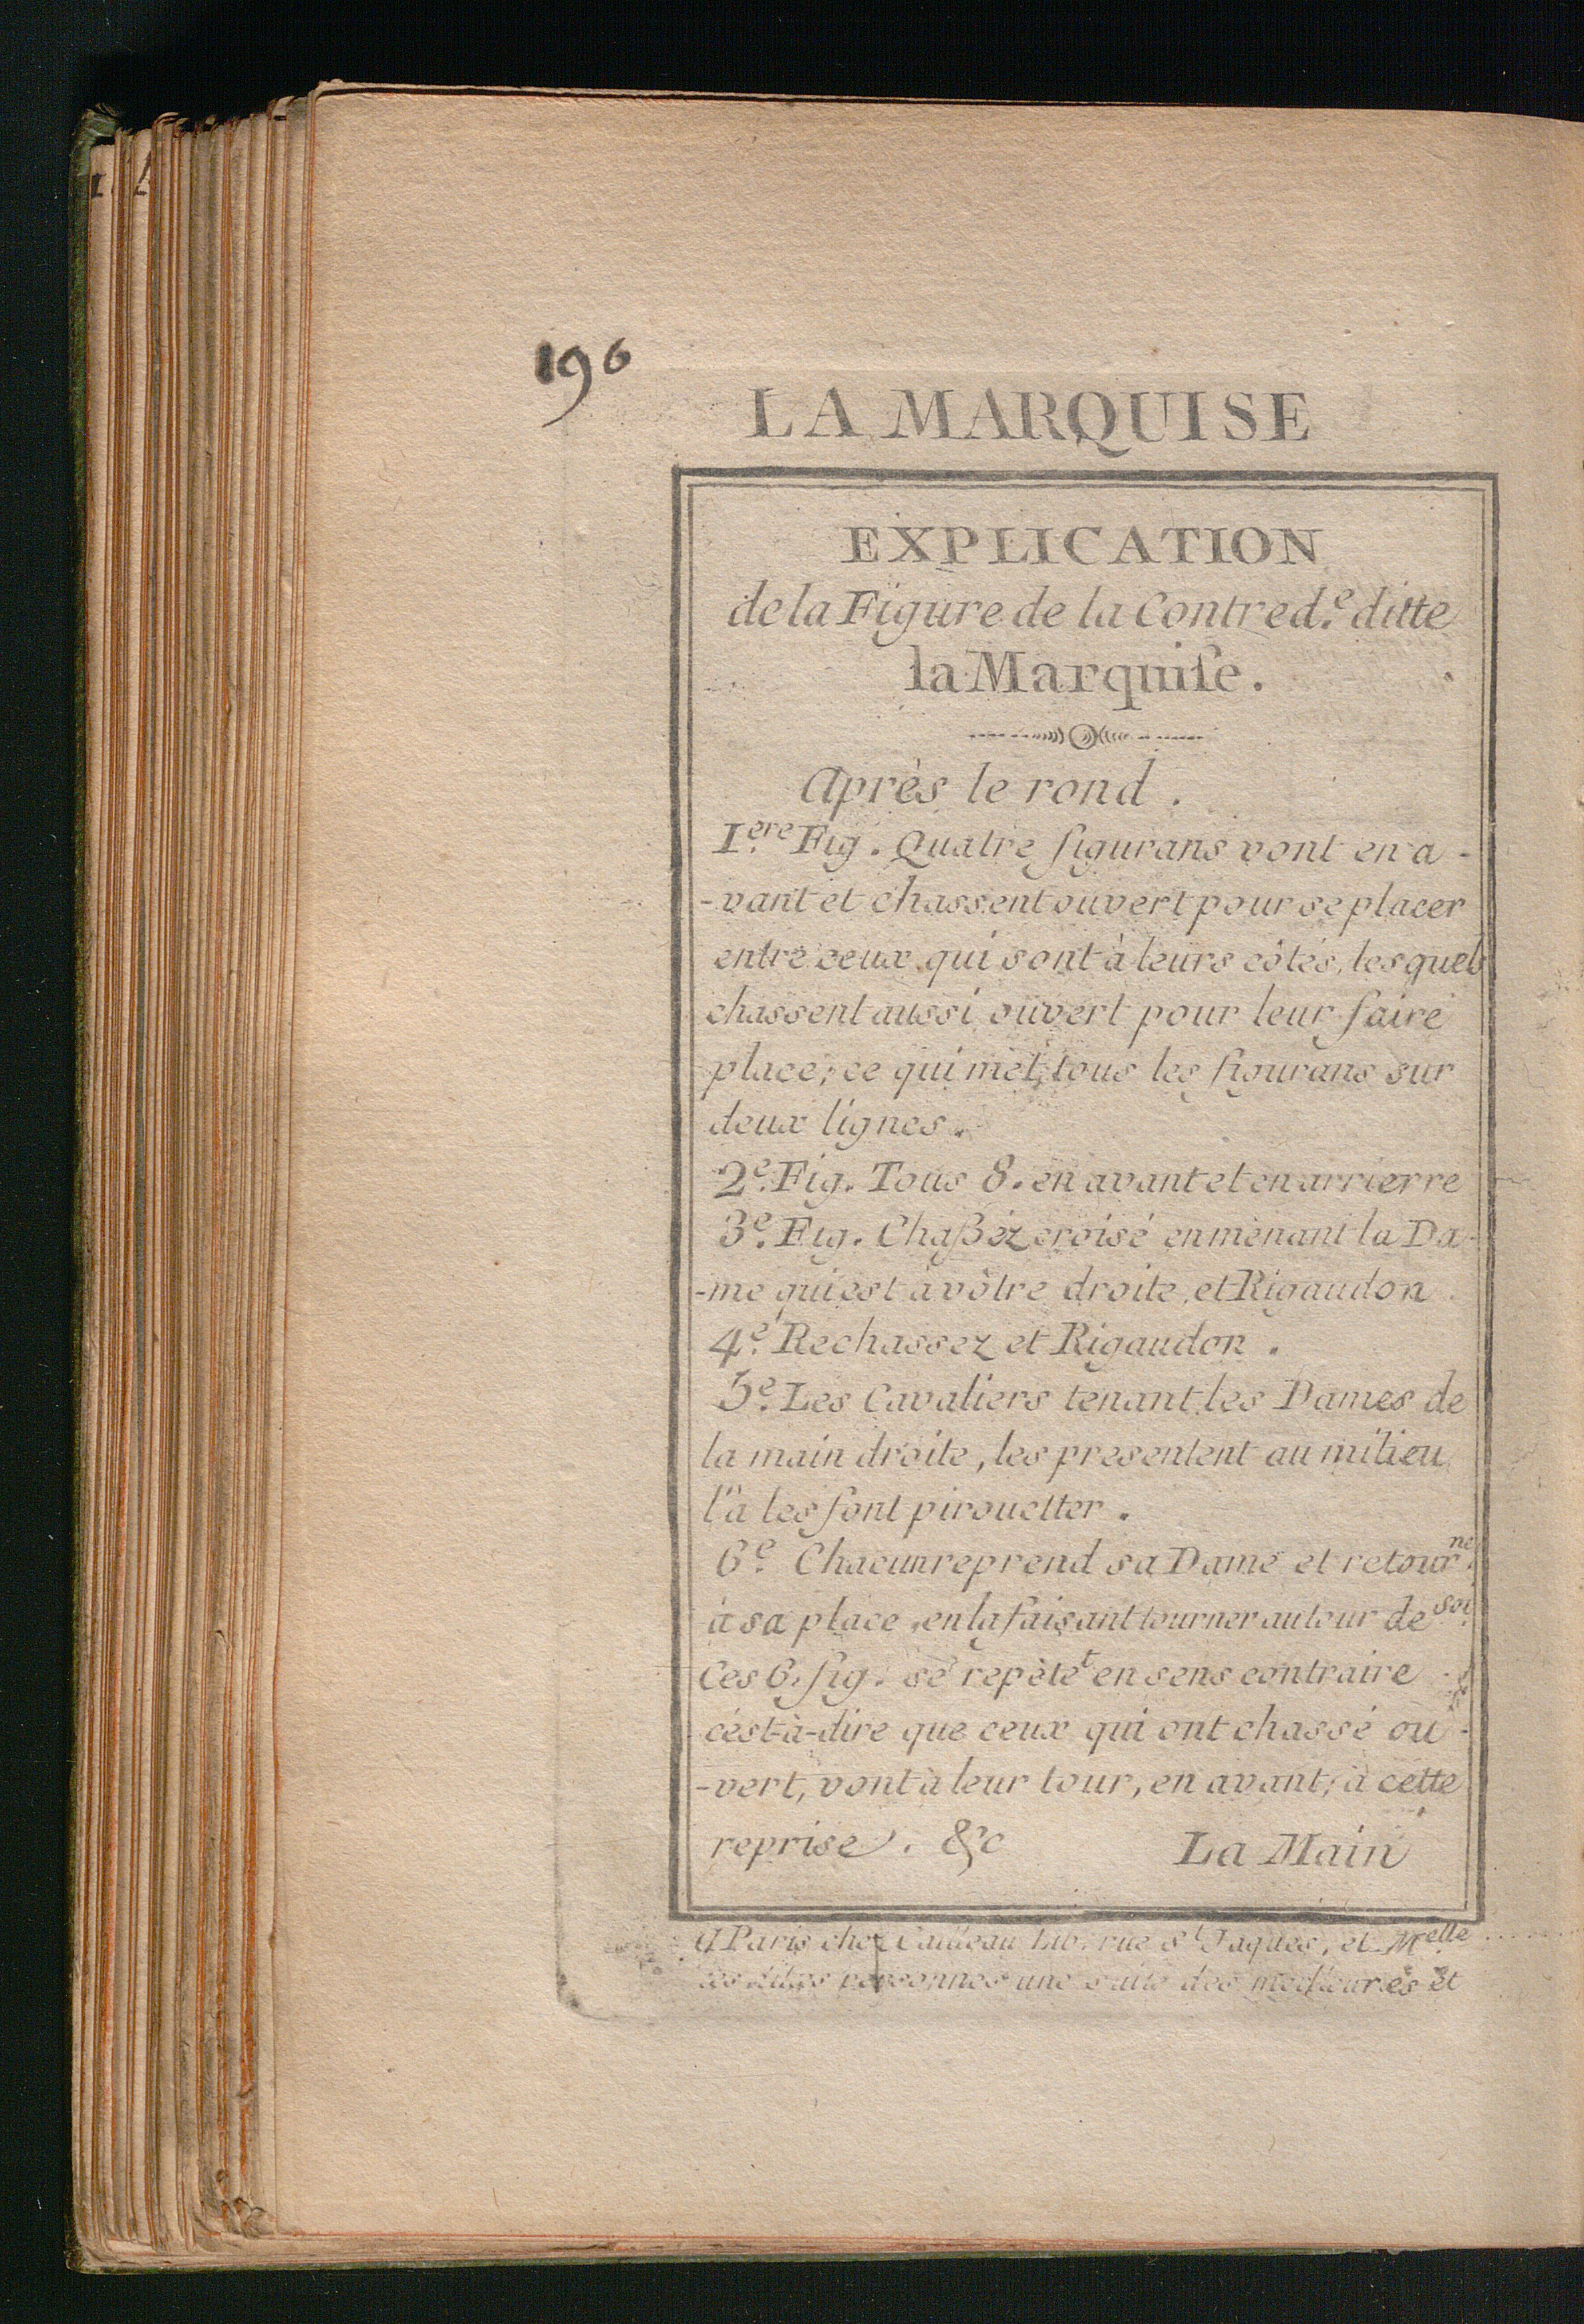 196
LA MARQUISE
EXPLICATION
de la Figure de la Contred.e ditte
la Marquiſe.
Après le rond.
I.ere Fig. Quatre figurans vont en a-
-vant et chassent ouvert pour se placer
entre ceux qui sont à leurs côtés, lesquels
chassent aussi ouvert pour leur faire
place; ce qui met tous les figurans sur
deux lignes.
2.e Fig. Tous 8. en avant et en arrierre
3.e Fig. Chaßéz croisé en menant la Da-
-me qui est à vôtre droite, et Rigaudon.
4.e Rechassez et Rigaudon.
5.e Les Cavaliers tenant les Dames de
la main droite, les presentent au milieu
l'à les font pirouetter.
6.e Chacun reprend sa Dame et retourne
à sa place, en la faisant tourner autour de soi.
Ces 6. fig. se repètet en sens contraire
cést-à-dire que ceux qui ont chassé ou-
-vert, vont à leur tour, en avant; à cette
reprise. &c La Main
A Paris chez Cailleau Lib. rue St Jaques, et Melle
personnes une suite des meilleures et